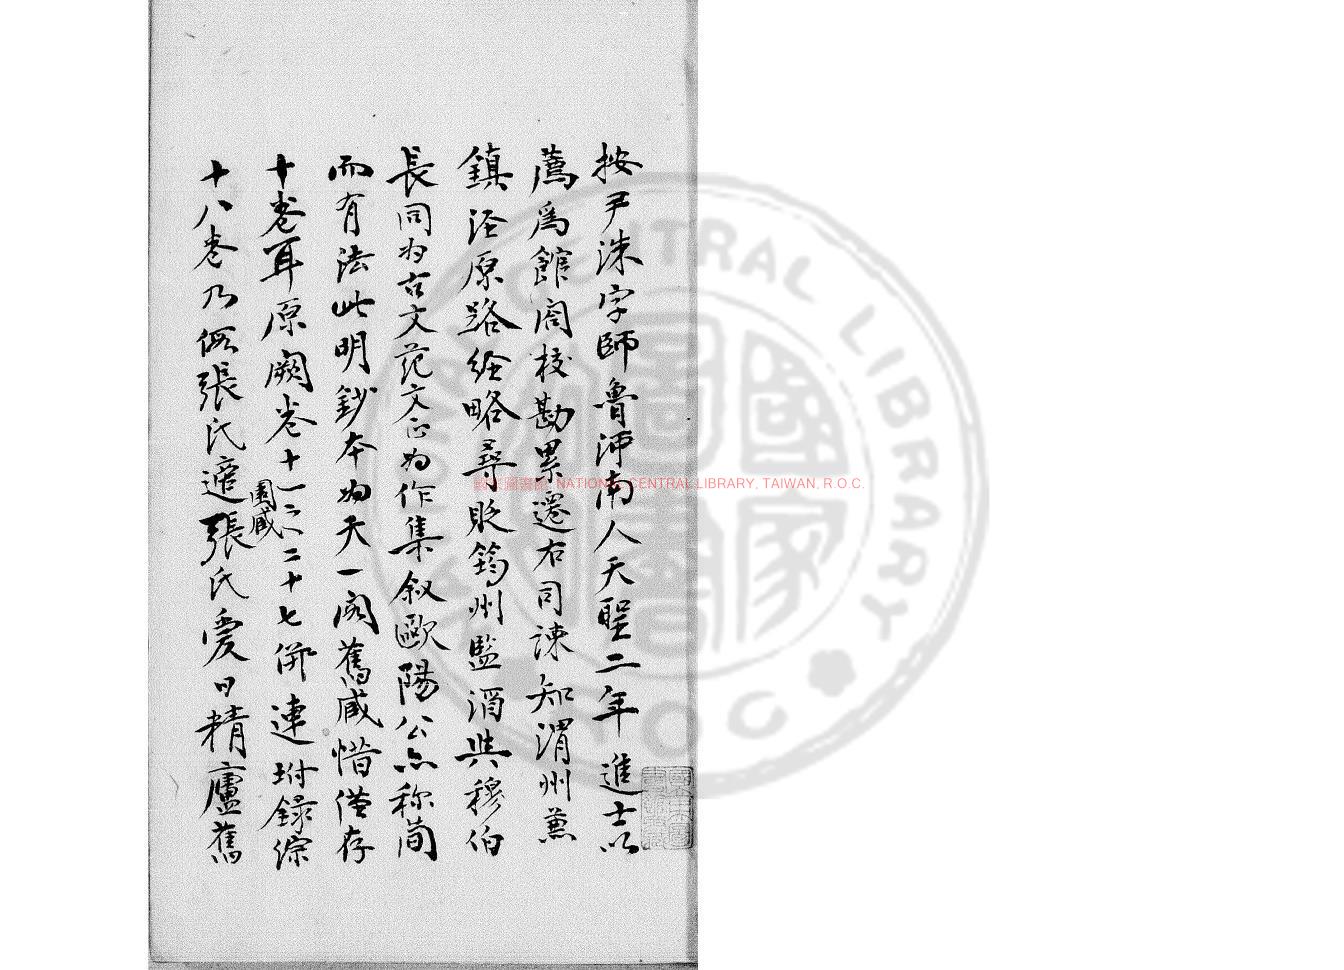 按尹洙字師魯河南人天聖二年進士以
薦爲館閣校勘累遷右司諫知渭州兼
鎮涇原路經略尋貶筠州監酒與穆伯
長同为古文范文正为作集叙歐陽公亦称简
而有法此明鈔本为天一阁舊藏惜僅存
十卷耳原闕卷十一之二十七併連坿錄綜
十八卷乃假張氏適園藏張氏愛日精廬舊
國家圖書館 NATIONAL CENTRAL LIBRARY, TAIWAN, R.O.C.
NATIONAL CENTRAL LIBRARY
國家圖書
ROC